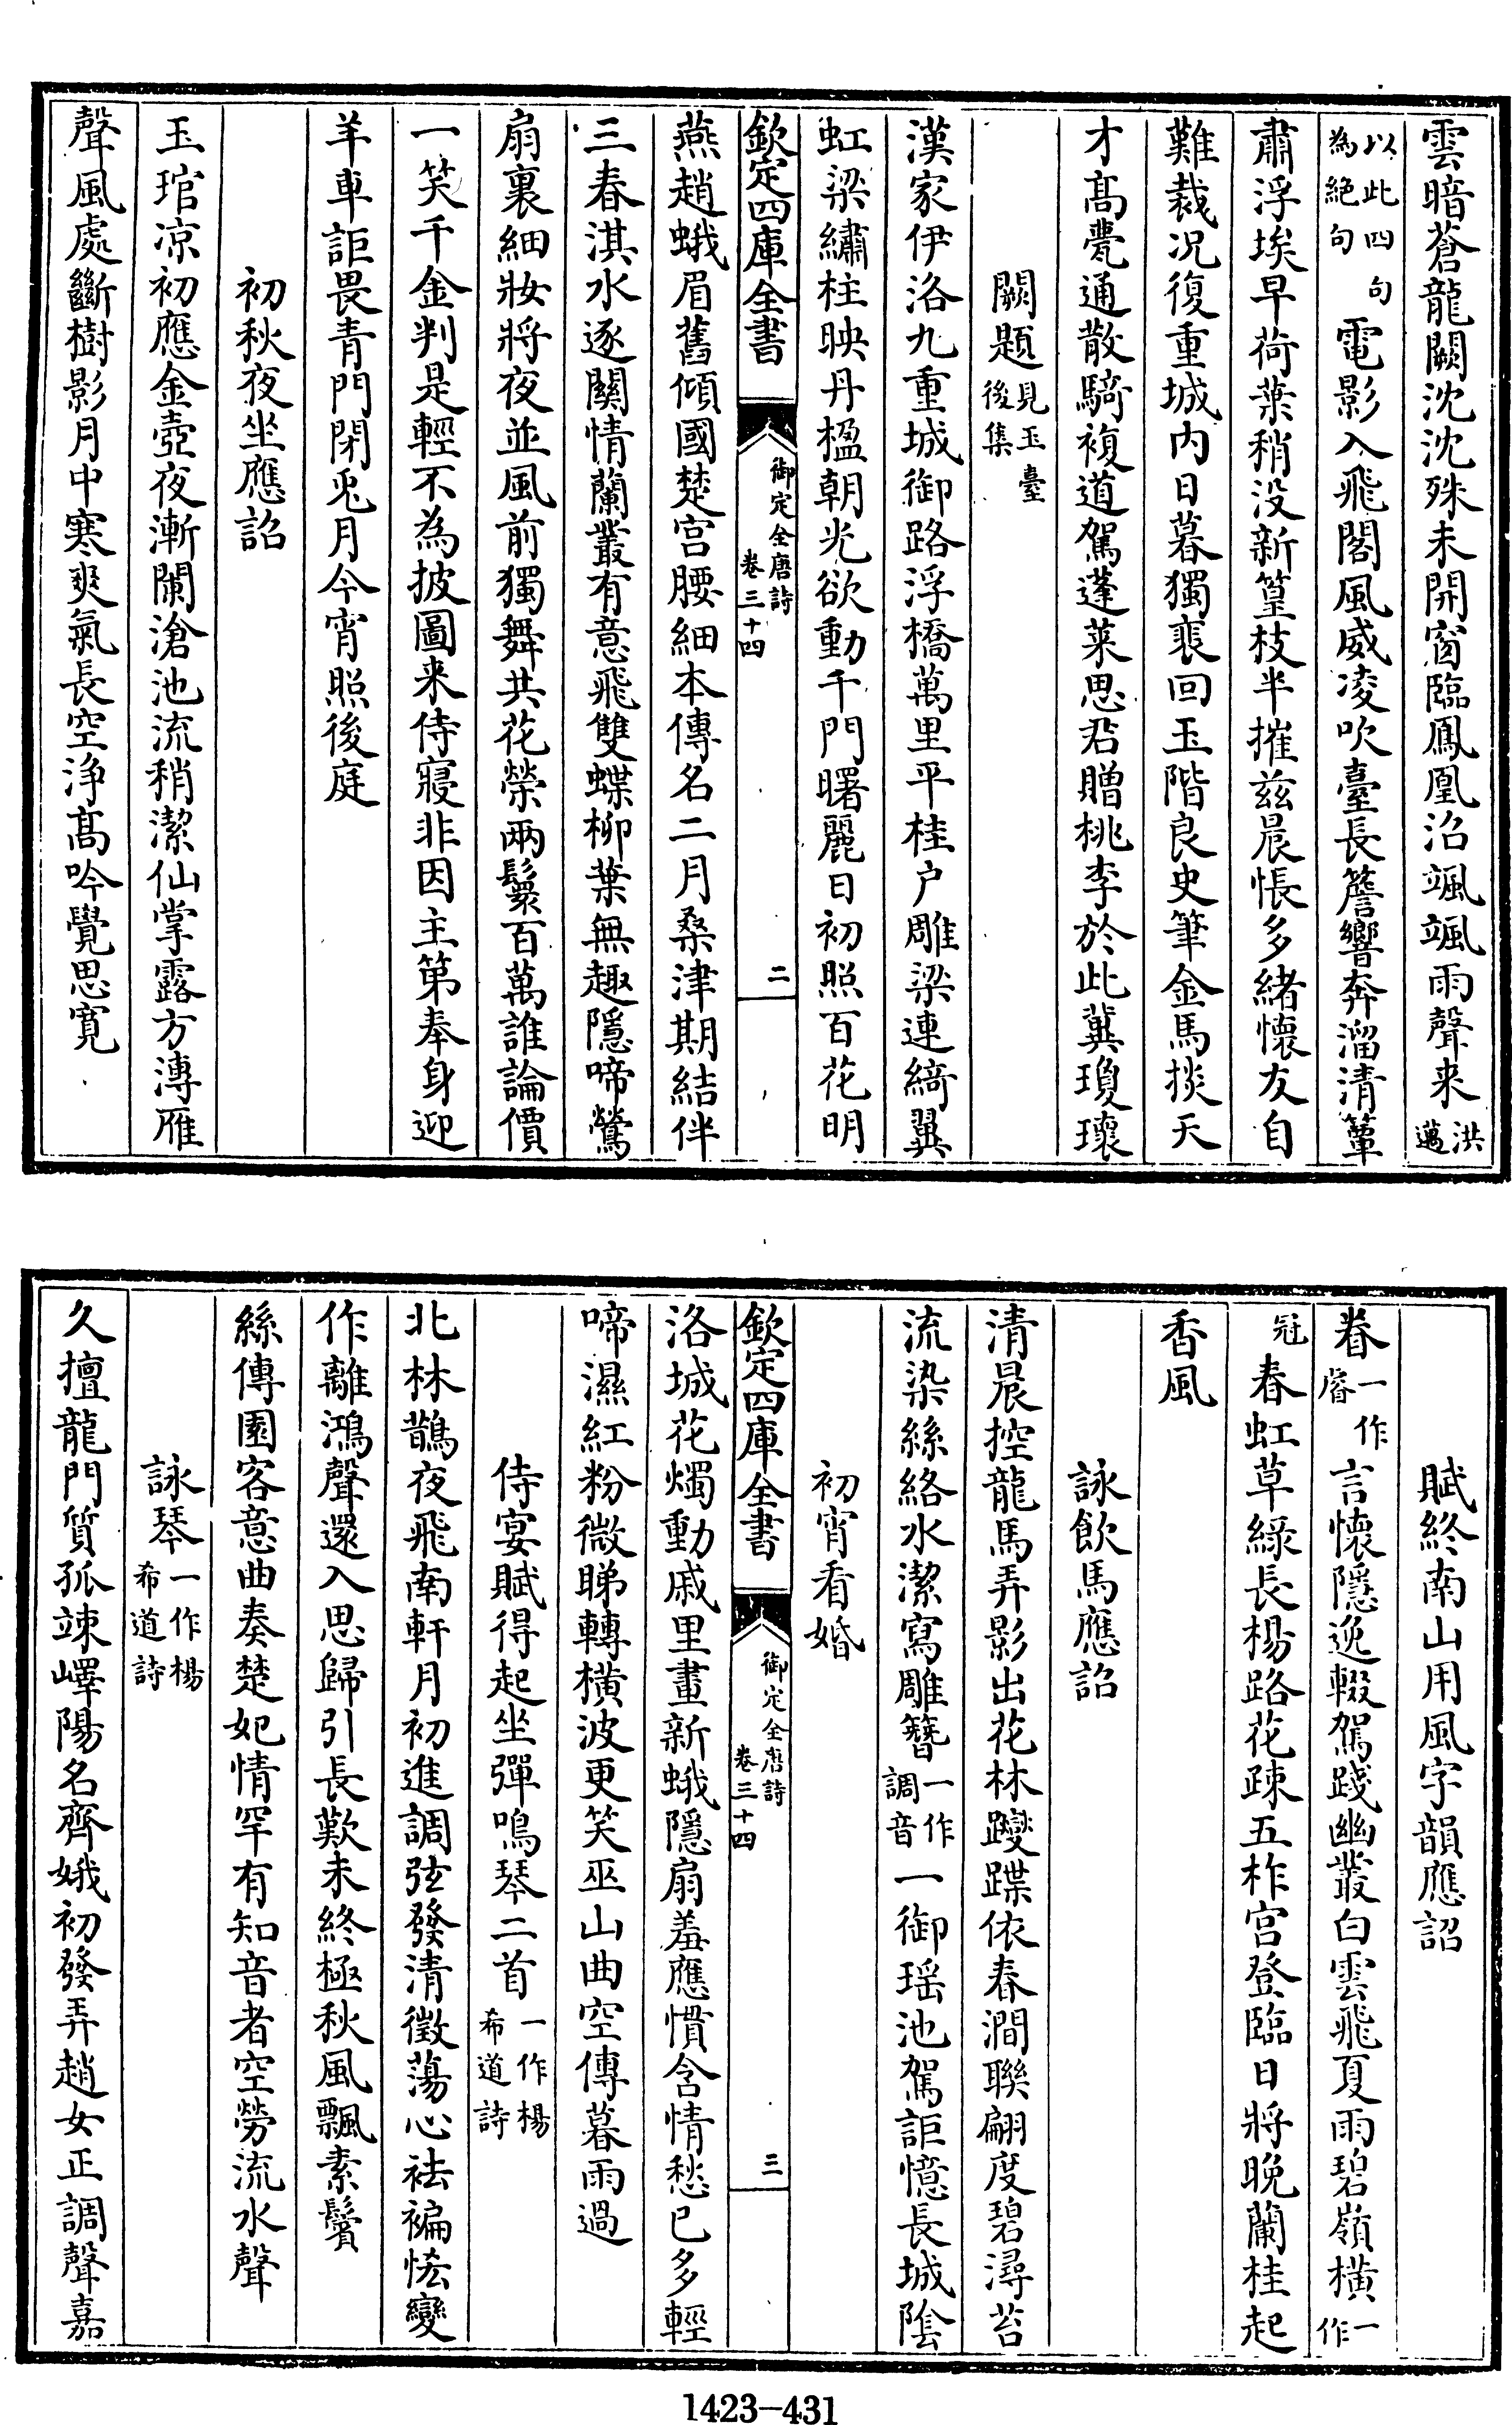 雲暗蒼龍闕沈沈殊未開窗臨鳳凰沼颯颯雨聲来洪邁
以此四句為絕句電影入飛閣風威凌吹臺長簷響奔溜清簟
肅浮埃早荷葉稍没新篁枝半摧兹晨悵多緒懷友自
難裁况復重城内日暮獨裵回玉階良史筆金馬掞天
才髙甍通散騎複道駕蓬莱思君贈桃李於此冀瓊瓌
闕題見玉臺後集
漢家伊洛九重城御路浮橋萬里平桂户雕梁連綺翼
虹梁繡柱映丹楹朝光欲動千門曙麗日初照百花明
欽定四庫全書
御定全唐詩
卷三十四
二
燕趙蛾眉舊傾國楚宫腰細本傳名二月桑津期結伴
三春淇水逐關情蘭叢有意飛雙蝶柳葉無趣隱啼鶯
扇裏細妝將夜並風前獨舞共花榮兩鬟百萬誰論價
一笑千金判是輕不為披圖来侍寢非因主第奉身迎
羊車詎畏青門閉兎月今宵照後庭
初秋夜坐應詔
玉琯凉初應金壺夜漸闌滄池流稍潔仙掌露方漙雁
聲風處斷樹影月中寒爽氣長空浄髙吟覺思寛
賦終南山用風字韻應詔
眷一作睿言懷隱逸輟駕踐幽叢白雲飛夏雨碧嶺橫一作
冠春虹草緑長楊路花疎五柞宫登臨日將晚蘭桂起
香風
詠飲馬應詔
清晨控龍馬弄影出花林躞蹀依春澗聯翩度碧潯苔
流染絲絡水潔寫雕簪一作調音一御瑶池駕詎憶長城隂
初宵看婚
欽定四庫全書
御定全唐詩
卷三十四
三
洛城花燭動戚里畫新蛾隱扇羞應慣含情愁已多輕
啼濕紅粉微睇轉橫波更笑巫山曲空傳暮雨過
侍宴賦得起坐彈鳴琴二首一作楊希道詩
北林鵲夜飛南軒月初進調弦發清徵蕩心袪褊恡變
作離鴻聲還入思歸引長歎未終極秋風飄素鬢
絲傳園客意曲奏楚妃情罕有知音者空勞流水聲
詠琴一作楊希道詩
久擅龍門質孤竦嶧陽名齊娥初發弄趙女正調聲嘉
1423-431